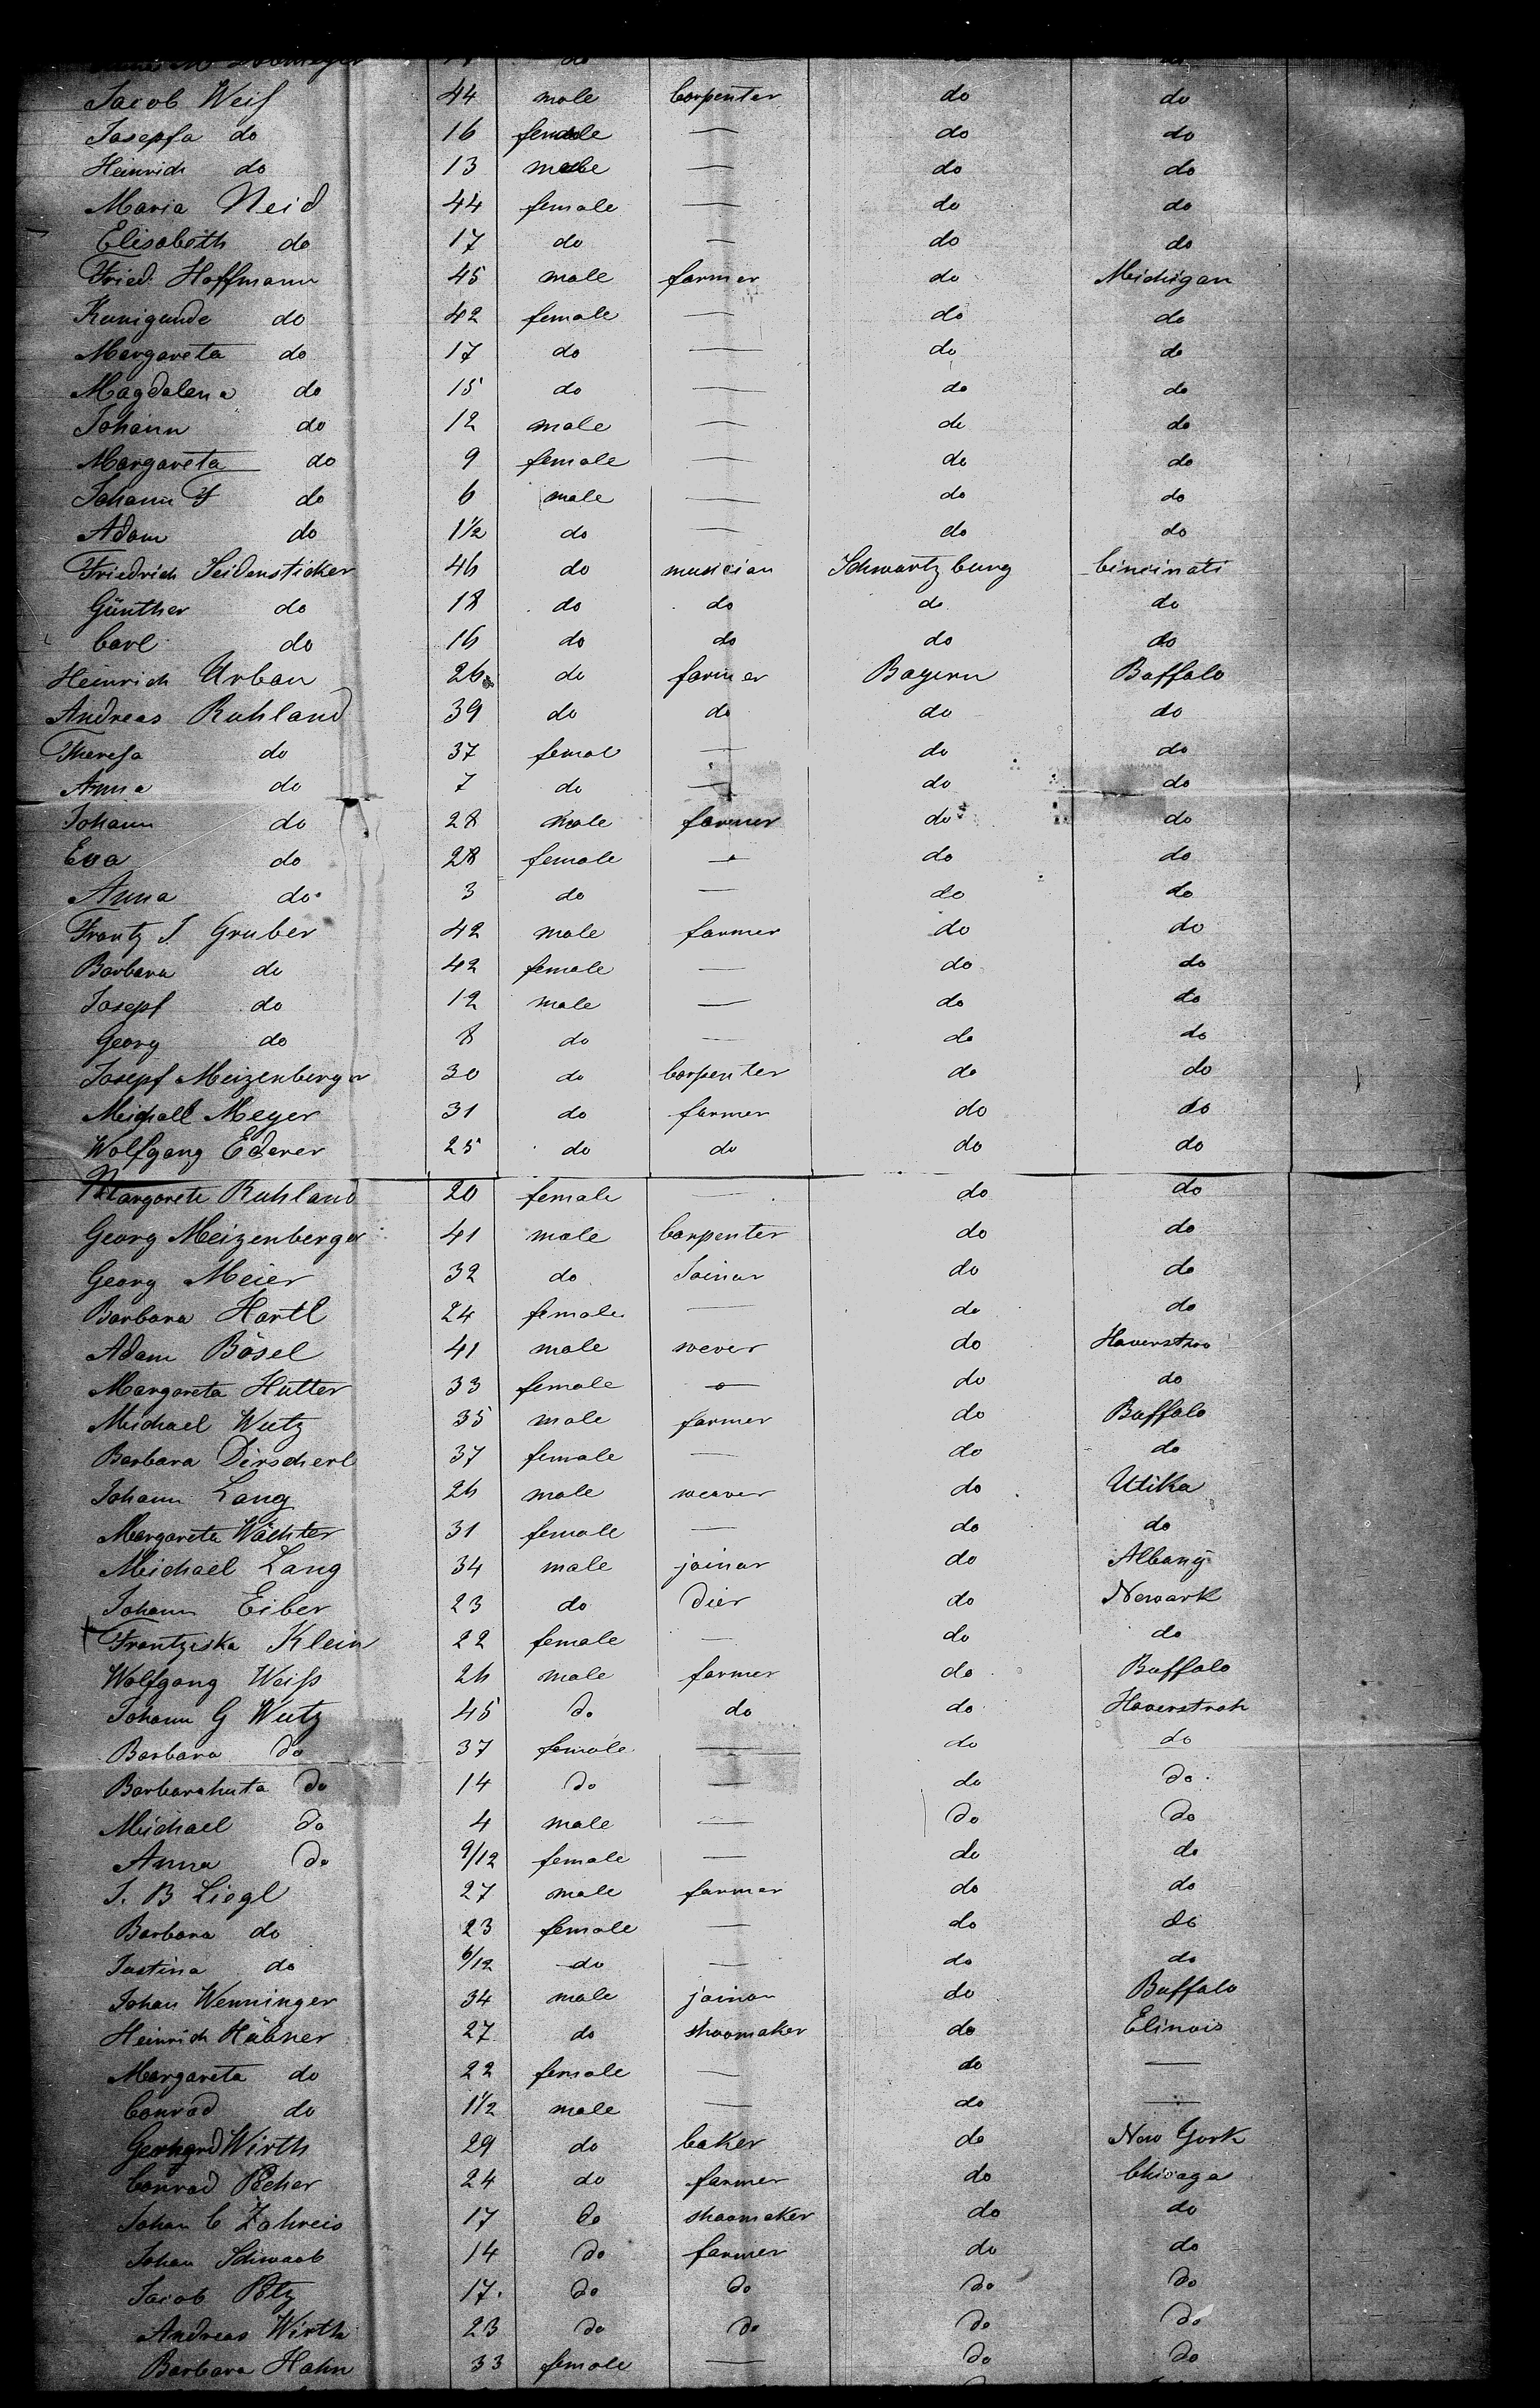 Jacob Weiss 44 male Carpenter do do
Josepfa do 16 female — do do
Heinrich do 13 male — do do
Maria Neid 44 female — do do
Elisabeth do 17 do — do do
Fried. Hoffmann 45 male farmer do Michigan
Kunigunde do 42 female — do do
Margareta do 17 do — do do
Magdalena do 15 do — do do
Johann do 12 male — do do
Margareta do 9 female — do do
Johann F do 6 male — do do
Adam do 1½ do — do do
Friedrich Seidensticker 46 do musician Schwartzburg Cincinati
Günther do 18 do do do do
Carl do 16 do do do do
Heinrich Urban 26 do farmer Bayern Buffalo
Andreas Ruhland 39 do do do do
Theresa do 37 femal — do do
Anna do 7 do — do do
Johann do 28 male farmer do do
Eva do 28 female — do do
Anna do 3 do — do do
Frantz J. Gruber 42 male farmer do do
Barbara do 42 female — do do
Josepf do 12 male — do do
Georg do 8 do — do do
Josepf Meizenberger 30 do Carpenter do do
Michall Meyer 31 do farmer do do
Wolfgang Ederer 25 do do do do
Margarete Ruhland 20 female — do do
Georg Meizenberger 41 male Carpenter do do
Georg Meier 32 do Joinar do do
Barbara Hartl 24 female — do do
Adam Bösel 41 male wever do Haverstroo
Margareta Hutter 33 female — do do
Michael Wutz 35 male farmer do Buffalo
Barbara Dirscherl 37 female — do do
Johann Lang 26 male weaver do Utika
Margareta Wächter 31 female — do do
Michael Lang 34 male joinar do Albany
Johann Eiber 23 do dier do Newark
Frantziska Klein 22 female — do do
Wolfgang Weiss 26 male farmer do Buffalo
Johann G Wutz 45 do do do Haverstroh
Barbara do 37 female — do do
Barbarahuta do 14 do — do do
Michael do 4 male — do do
Anna do 9/12 female — do do
J. B Liegl 27 male farmer do do
Barbara do 23 female — do do
Justina do 6/12 do — do do
Johan Wenninger 34 male joinar do Buffalo
Heinrich Hübner 27 do shoomaker do Elinois
Margareta do 22 female — do —
Conrad do 1½ male — do —
Gerhard Wirth 29 do baker do New York
Conrad Pecher 24 do farmer do Chicaga
Johan C Zahreis 17 do shoomaker do do
Johan Schwaab 14 do farmer do do
Jacob Petz 17 do do do do
Andreas Wirth 23 do do do do
Barbara Hahn 33 female — do do